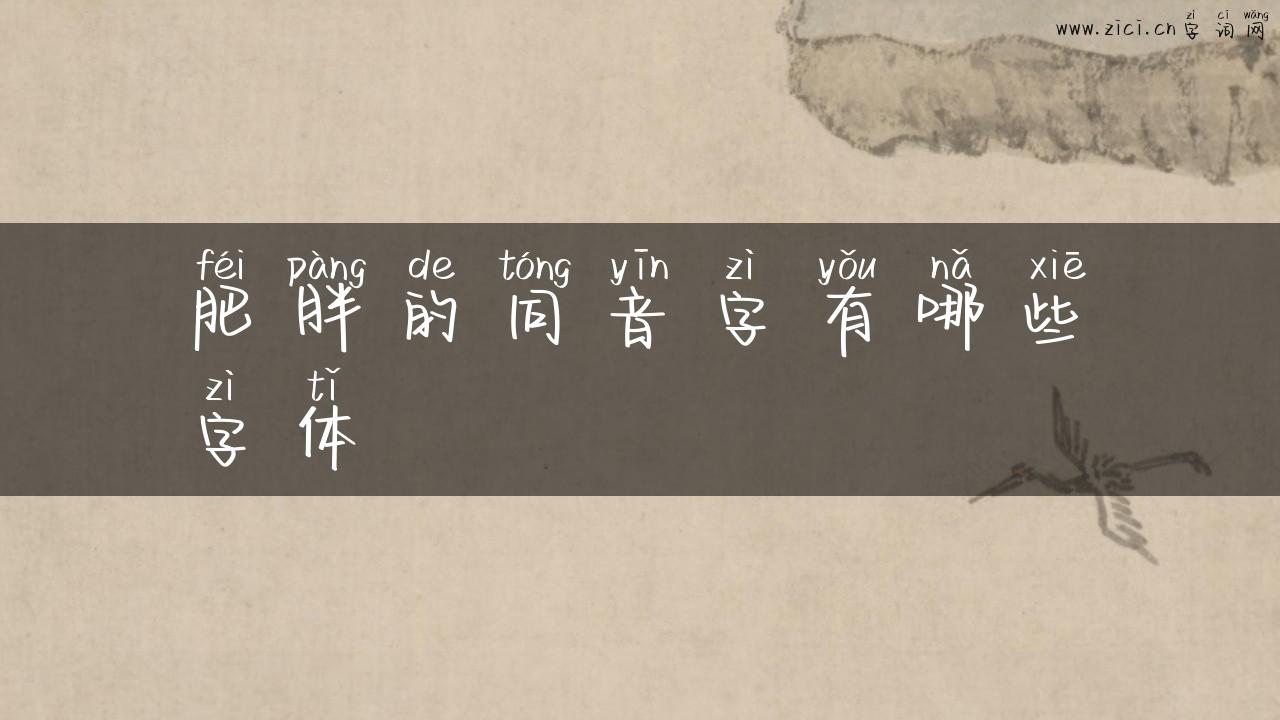 zì cí wǎng
www.zici.cn 字 词 网
féi pàng de tóng yīn zì yǒu nǎ xiē
肥 胖 的 同 音 字 有 哪 些
zì tǐ
字 体